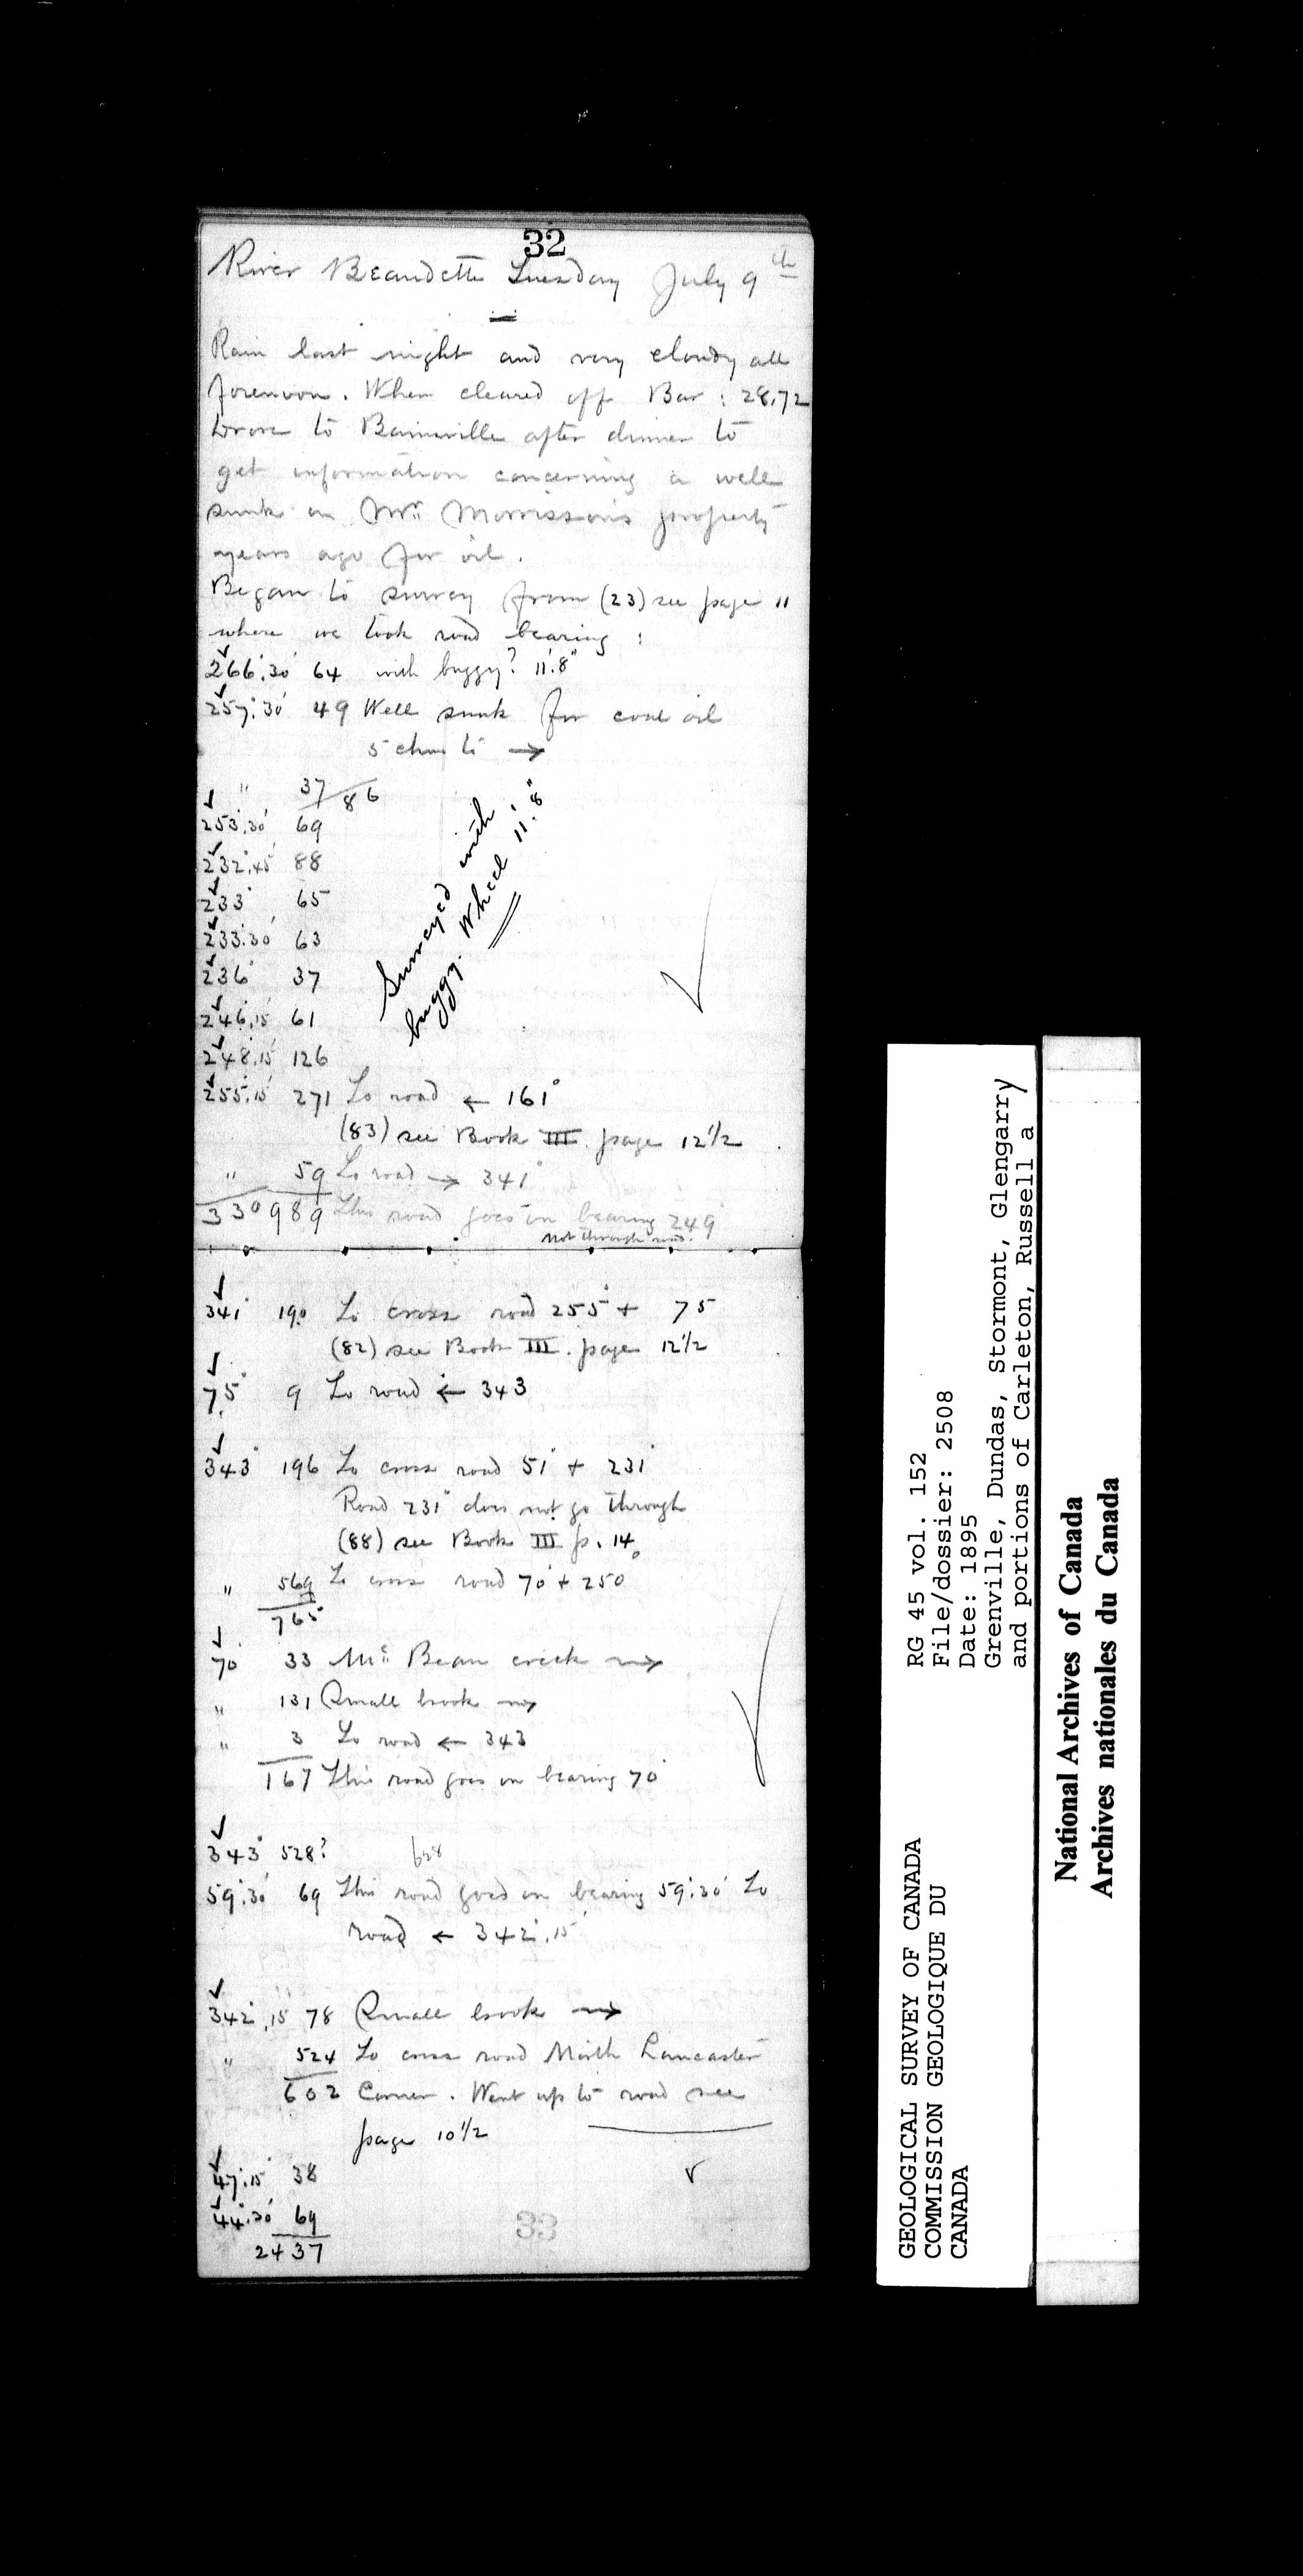 32
River Beaudette Tuesday July 9th
Rain last night and very cloudy all
forenoon. When cleared off Bar: 28.72
Drove to Bainsville after dinner to
get information concerning a well
sunk on Mr. Morrisson's property
years ago for oil.
Began to survey from (23) see page 11
where we took road bearing:
266°.30' 64 with buggy? 11'.8"
257°.30' 49 Well sunk for coal oil
5 chns to →
" 37/86
253°.30' 69
232°.45' 88
233° 65
233°.30' 63
236° 37
246°.15' 61
248°.15' 126
Surveyed with
buggy. Wheel 11'.8"
255°.15' 271 To road ← 161°
(83) see Book III. page 12 1/2
" 59 To road → 341°
330 989 This road goes on bearing 249°
Not through road.
341° 190 To cross road 255° + 75
(82) see Book III. page 12 1/2
75° 9 To road ← 343
343° 196 To cross road 51° + 231°
Road 231° does not go through
(88) see Book III p. 14
" 569 To cross road 70° + 250°
765
70° 33 Mc Bean creek →
" 131 Small brook →
" 3 To road ← 343
167 This road goes on bearing 70°
343° 528? 628
59°.30' 69 This road goes on bearing 59°.30' To
road ← 342°.15'
342°.15' 78 Small brook →
" 524 To cross road North Lancaster
602 Corner. Went up to road see
page 10 1/2
47°.15' 38
44°.30' 69
2437
33
RG 45 vol. 152
File/dossier: 2508
Date: 1895
Grenville, Dundas, Stormont, Glengarry
and portions of Carleton, Russell a
GEOLOGICAL SURVEY OF CANADA
COMMISSION GEOLOGIQUE DU
CANADA
National Archives of Canada
Archives nationales du Canada